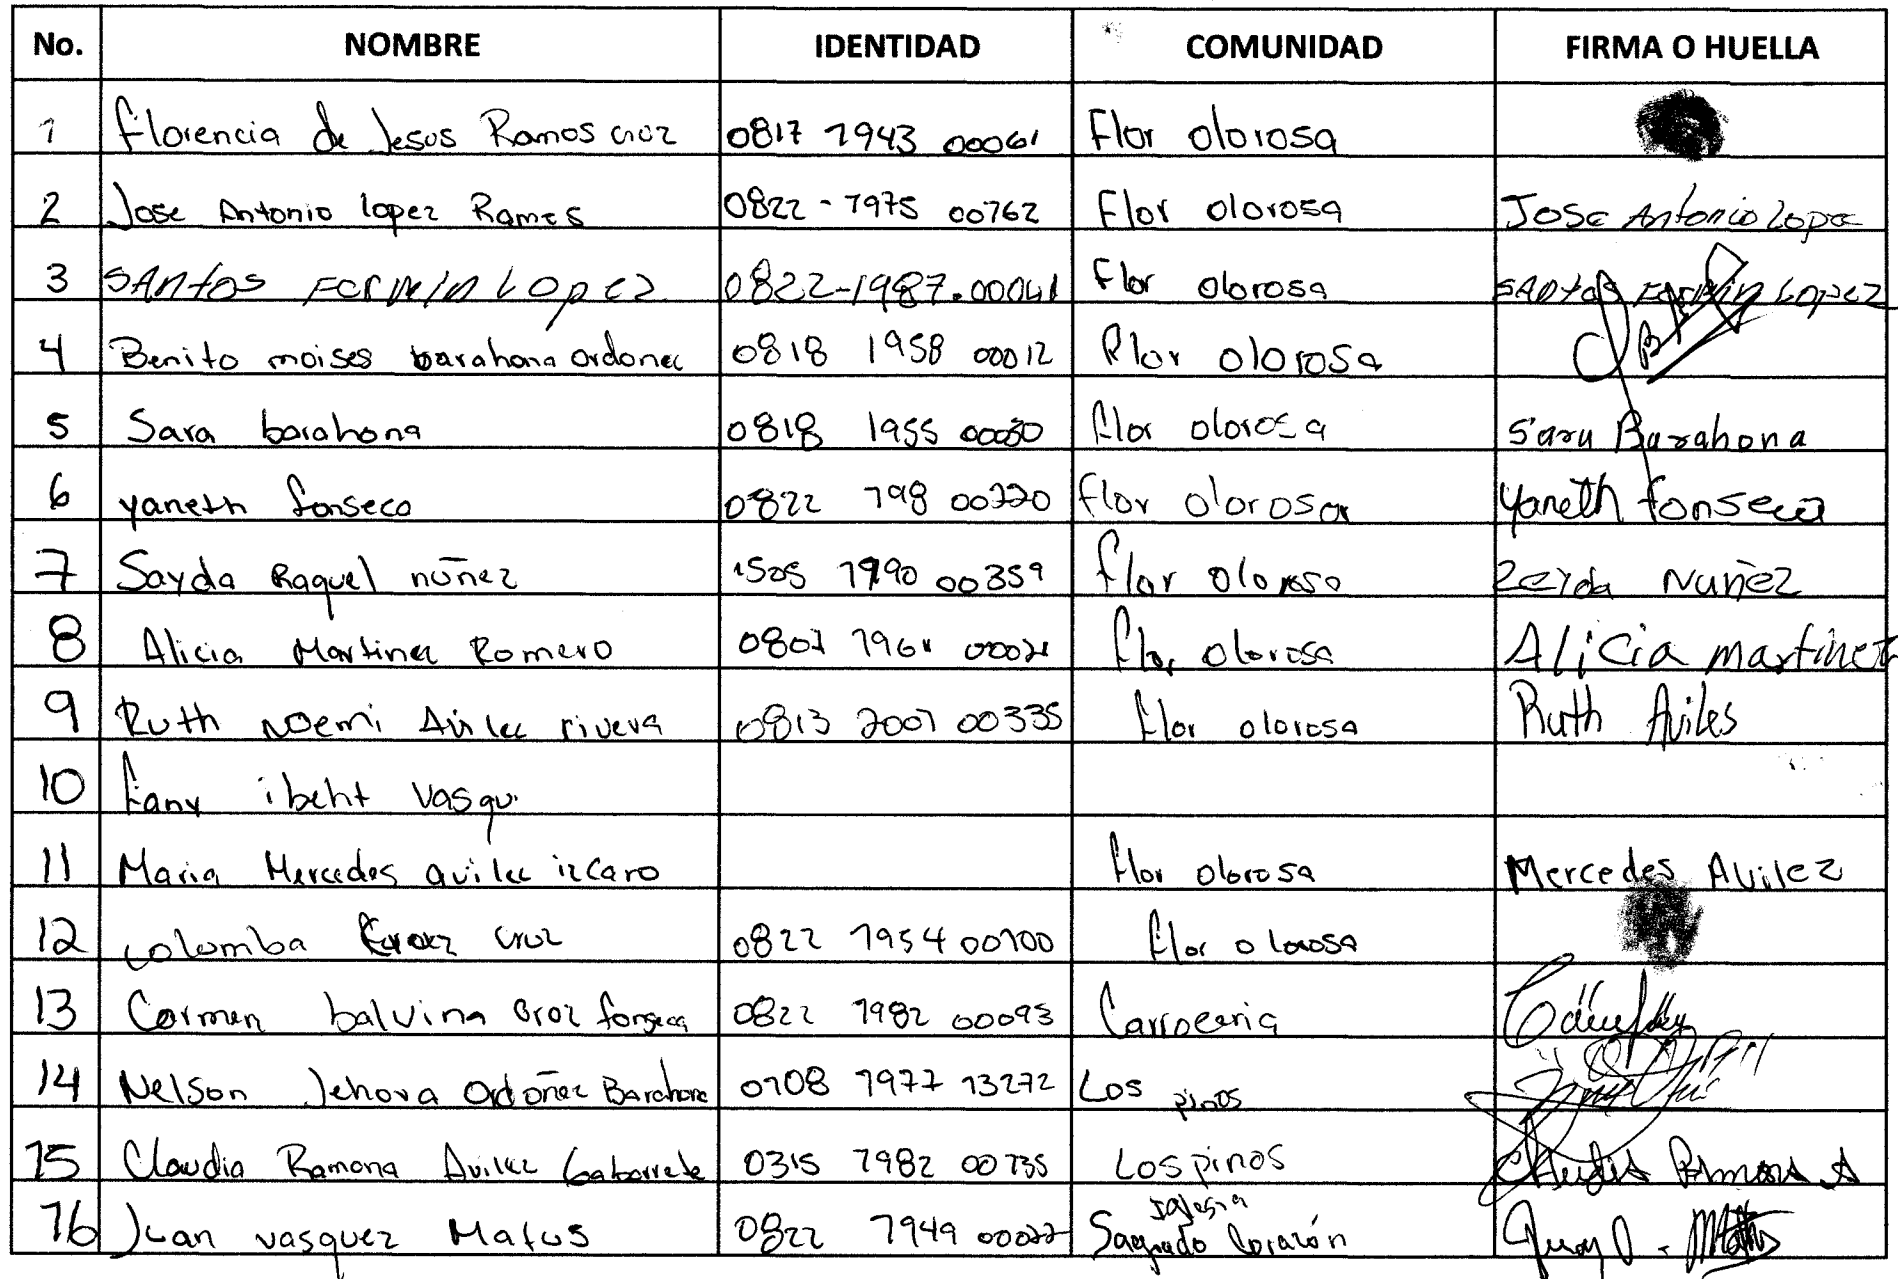 No. NOMBRE IDENTIDAD COMUNIDAD FIRMA O HUELLA
1 Florencia de Jesus Ramos cruz 0817 1943 00061 Flor olorosa
2 Jose Antonio lopez Ramos 0822-1975 00162 Flor olorosa Jose Antonio Lopez
3 SANtos FerMIN Lopez 0822-1987.00041 Flor olorosa SANtos Fermin Lopez
4 Benito moises barahona ordonez 0818 1958 00012 Flor olorosa
5 Sara barahona 0818 1955 Flor olorosa Sara Barahona
6 yaneth fonseca 0822 198 Flor olorosa Yaneth fonseca
7 Sayda Raquel nuñez 1505 1990 00359 Flor olorosa Zeida Nuñez
8 Alicia Martinez Romero Flor olorosa Alicia martinez
9 Ruth Noemi Avilez rivera 0813 2001 00335 Flor olorosa Ruth Aviles
10 fany ibeht vasqu
11 Maria Mercedes avilez izcaro Flor olorosa Mercedes Avilez
12 colomba cruz 0822 1954 00100 Flor olorosa
13 Carmen balvina cruz fonseca 0822 1982 00093 Carroceria
14 Nelson Jehova Ordoñez Barahona 0108 1977 13272 Los pinos
15 Claudia Ramona Avilez Gabarrete 0315 1982 00135 Los pinos Claudia Ramona A
16 Juan vasquez Matus 0822 1949 Iglesia Sagrado Corazón